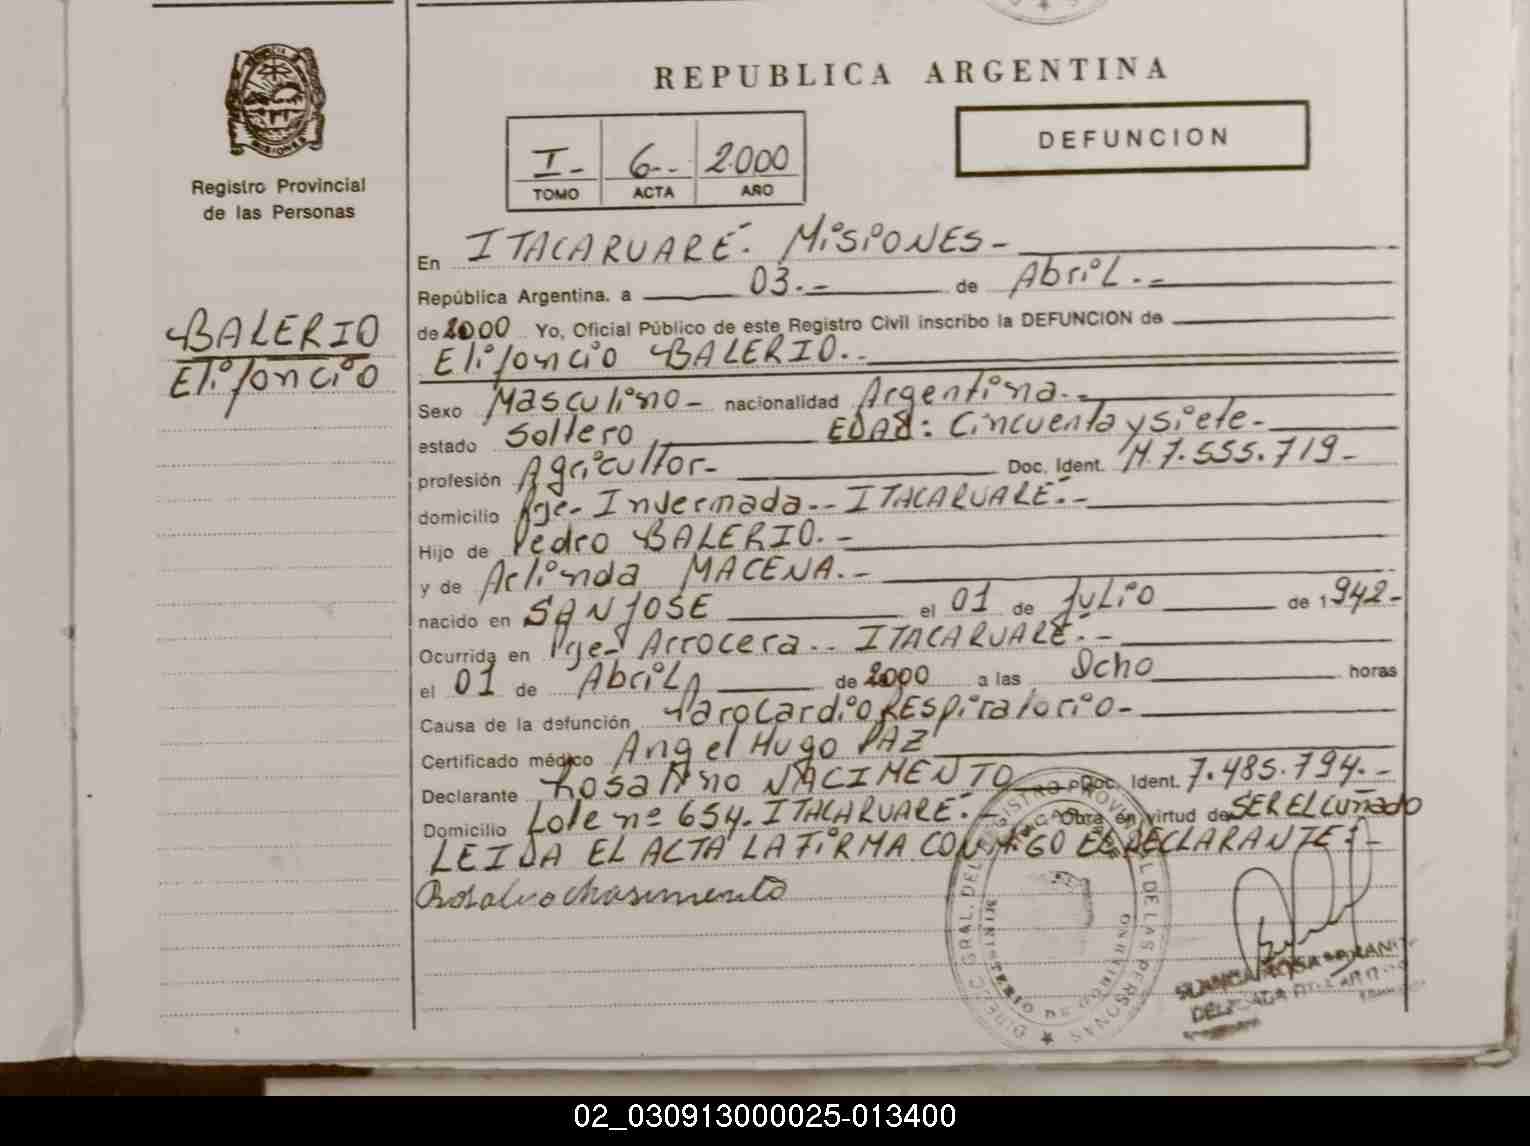 REPUBLICA ARGENTINA
DEFUNCION
I- 6-- 2000
TOMO ACTA AÑO
MISIONES
Registro Provincial
de las Personas
BALERIO
Elifoncio
En ITACARUARÉ- MISIONES-
República Argentina. a 03.- de Abril.-
de 2000 Yo, Oficial Público de este Registro Civil inscribo la DEFUNCION de
Elifoncio BALERIO.-
Sexo Masculino- nacionalidad Argentina.-
estado Soltero EDAD: Cincuenta y siete-
profesión Agricultor- Doc. Ident. M.7.555.719-
domicilio Pje- Invernada-- ITACARUARÉ.-
Hijo de Pedro BALERIO.-
y de Aclinda MACENA.-
nacido en SAN JOSE el 01 de Julio de 1942-
Ocurrida en Pje- Arrocera-- ITACARUARÉ.-
el 01 de Abril de 2000 a las Ocho horas
Causa de la defunción ParoCardioRespiratorio-
Certificado médico Angel Hugo PAZ
Declarante NACIMENTO Doc. Ident. 7.485.794.-
Domicilio Lote nº 654- ITACARUARÉ.- Obra en virtud de SER EL Cuñado
LEIDA EL ACTA LA FIRMA CONMIGO EL DECLARANTE:-
DIREC. GRAL. DEL REGISTRO PROVINCIAL DE LAS PERSONAS
MINISTERIO DE GOBIERNO
BLANCA ROSA
DELEGADA
02_030913000025-013400